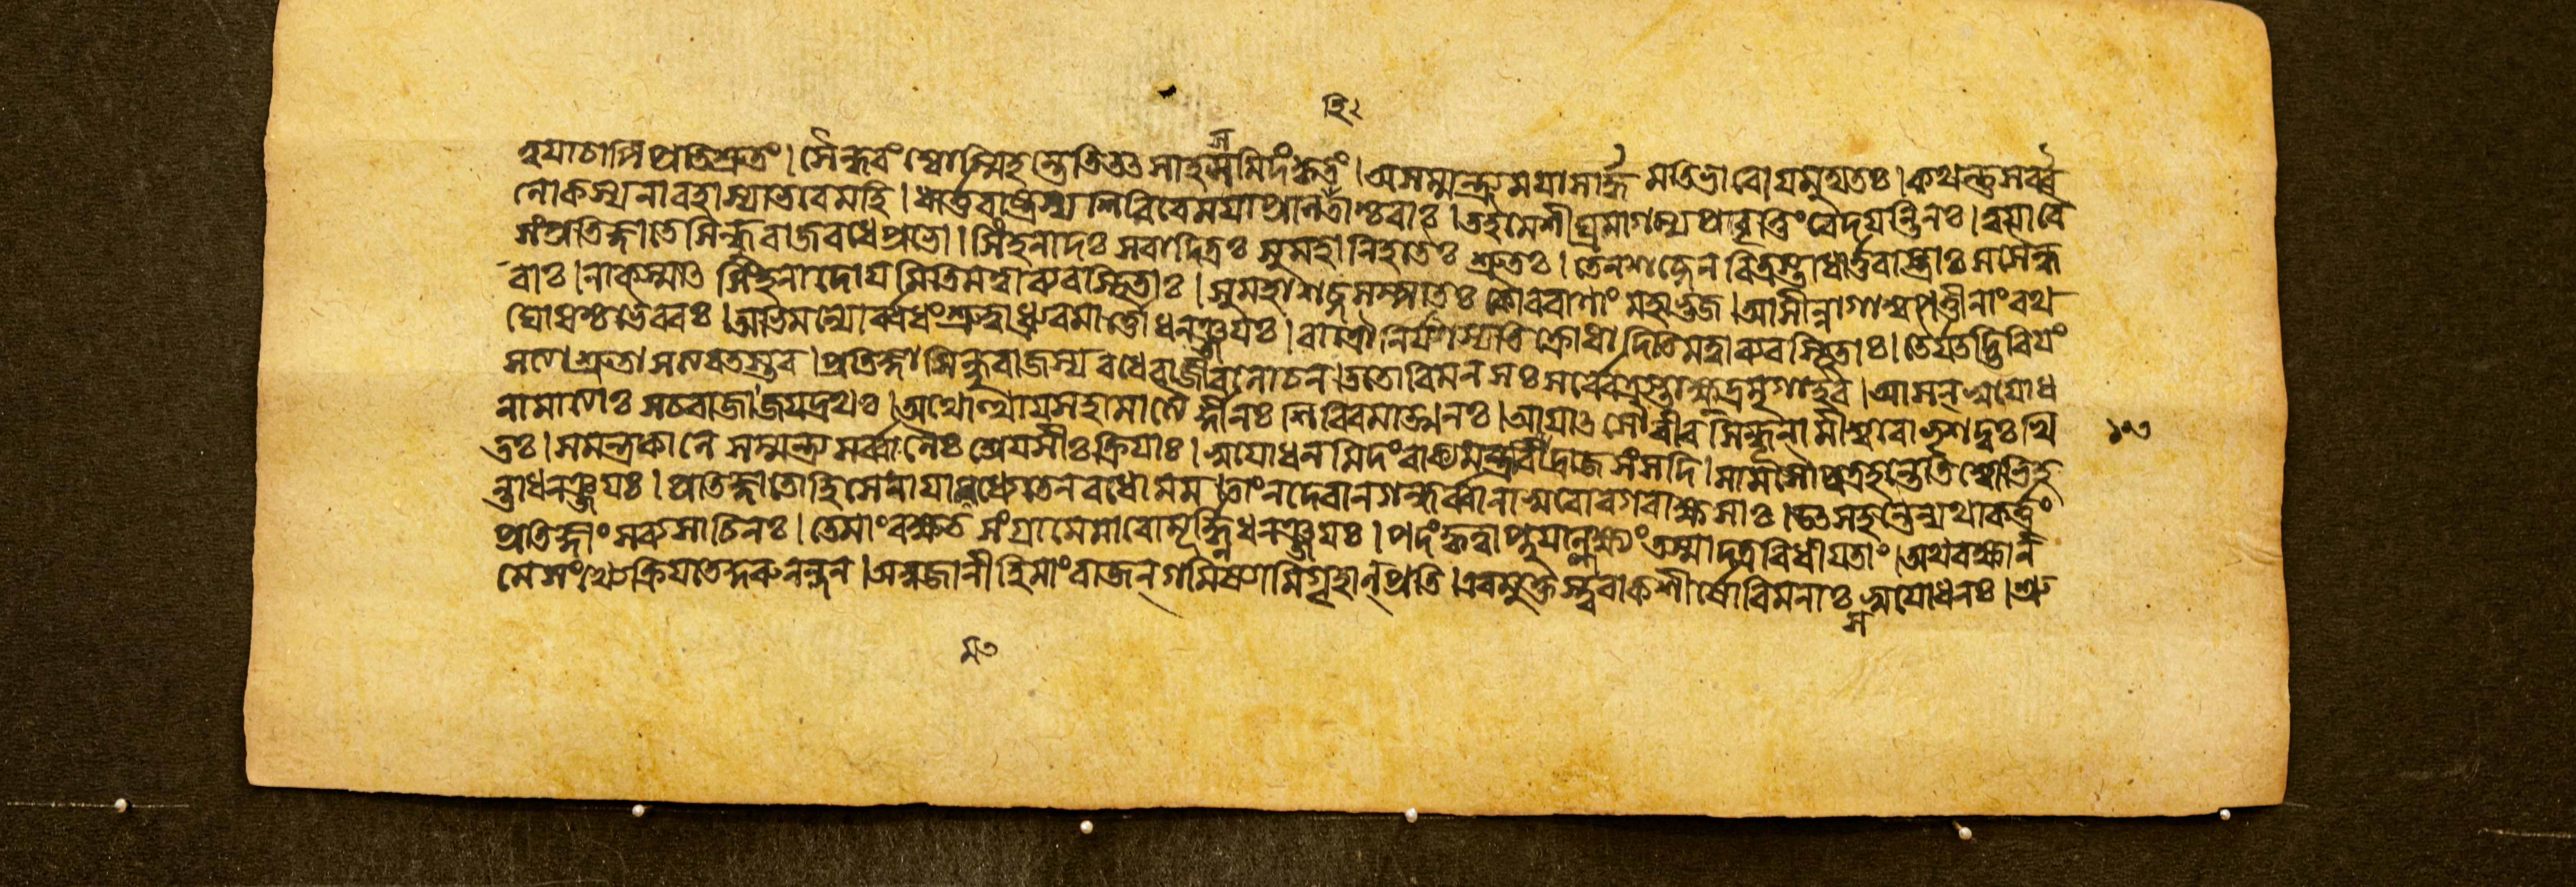 ত্বযা চাপি প্রতিশ্রুতং। সৈন্ধবং শ্বোস্মি হন্তেতি তৎ সাহসমিদং কৃতং। অসম্মন্ত্র্য মযা সার্দ্ধমতিভারোযমুদ্যতঃ। কথন্তু সর্ব্ব
লোকস্য নাবহাস্যা ভবেমহি। ধার্ত্তরাষ্ট্রস্য শিবিরে মযা প্রণিহিতাশ্চরাঃ। ত ইমে শীঘ্রমাগম্য প্রবৃত্তিং বেদযন্তি নঃ। ত্বযা বৈ
সংপ্রতিজ্ঞাতে সিন্ধুরাজবধে প্রভো। সিংহনাদঃ সবাদিত্রঃ সুমহানিহ তৈঃ শ্রুতঃ। তেন শব্দেন বিত্রস্তা ধার্ত্তরাষ্ট্রাঃ সসৈন্ধ
বাঃ। নাকস্মাৎ সিংহনাদোযমিতি মত্বা ব্যবস্থিতাঃ। সুমহাশব্দসম্পাতঃ কৌরবাণাং মহাভুজ। আসীন্নাগাশ্বপত্তীনাং রথ
ঘোষশ্চ ভৈরবঃ। অভিমন্যোর্ব্বধং শ্রুত্বা ধ্রুবমার্ত্তো ধনঞ্জযঃ। রাত্রৌ নির্যাস্যতি ক্রোধাদিতি মত্বা ব্যবস্থিতাঃ। তৈর্যতদ্ভিরিযং
সত্যা শ্রুতা সত্যবতস্তব। প্রতিজ্ঞা সিন্ধুরাজস্য বধে রাজীবলোচন। ততো বিমনসঃ সর্ব্বে ত্রস্তাঃ ক্ষুদ্রমৃগা ইব। আসন্ সুযোধ
নামাত্যাঃ স চ রাজা জযদ্রথঃ। অথোত্থায সহামাত্যৈর্দীনঃ শিবিরমাত্মনঃ। আযাৎ সৌবীরসিন্ধূনামীশ্বরো ভৃশদুঃখি
তঃ। স মন্ত্রকালে সম্মন্ত্র্য সর্ব্বা নৈঃশ্রেযসীঃ ক্রিযাঃ। সুযোধনমিদং বাক্যমব্রবীদ্রাজসংসদি। মামসৌ পুত্রহন্তেতি শ্বোভিযা
তা ধনঞ্জযঃ। প্রতিজ্ঞাতো হি সেনাযা মধ্যে তেন বধো মম। তাং ন দেবা ন গন্ধর্ব্বা নাসুরোরগরাক্ষসাঃ। উৎসহন্তেন্যথা কর্ত্তুং
প্রতিজ্ঞাং সব্যসাচিনঃ। তে মাং রক্ষত সংগ্রামে মা বো মূর্দ্ধ্নি ধনঞ্জযঃ। পদং কৃত্বাপ্নুযাল্লক্ষ্যং তস্মাদত্র বিধীযতাং। অথ রক্ষা ন
মে সংখ্যে ক্রিযতে কুরুনন্দন। অনুজানীহি মাং রাজন্ গমিষ্যামি গৃহান্ প্রতি। এবমুক্তস্ত্ববাক্শীর্ষো বিমনাঃ স সুযোধনঃ। শ্রু